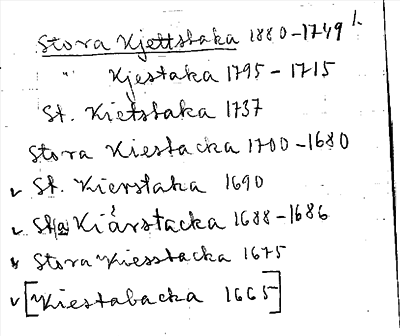 Stora Kjettstaka 1880-1749 1.
" Kjestaka 1795-1715
St. Kietstaka 1737
Stora Kiestacka 1700-1680
✓ St. Kierstaka 1690
✓ St[a] Kiårstacka 1688-1686
✓ Stora Kiesstacka 1675
✓ [Kiestabacka 1665]